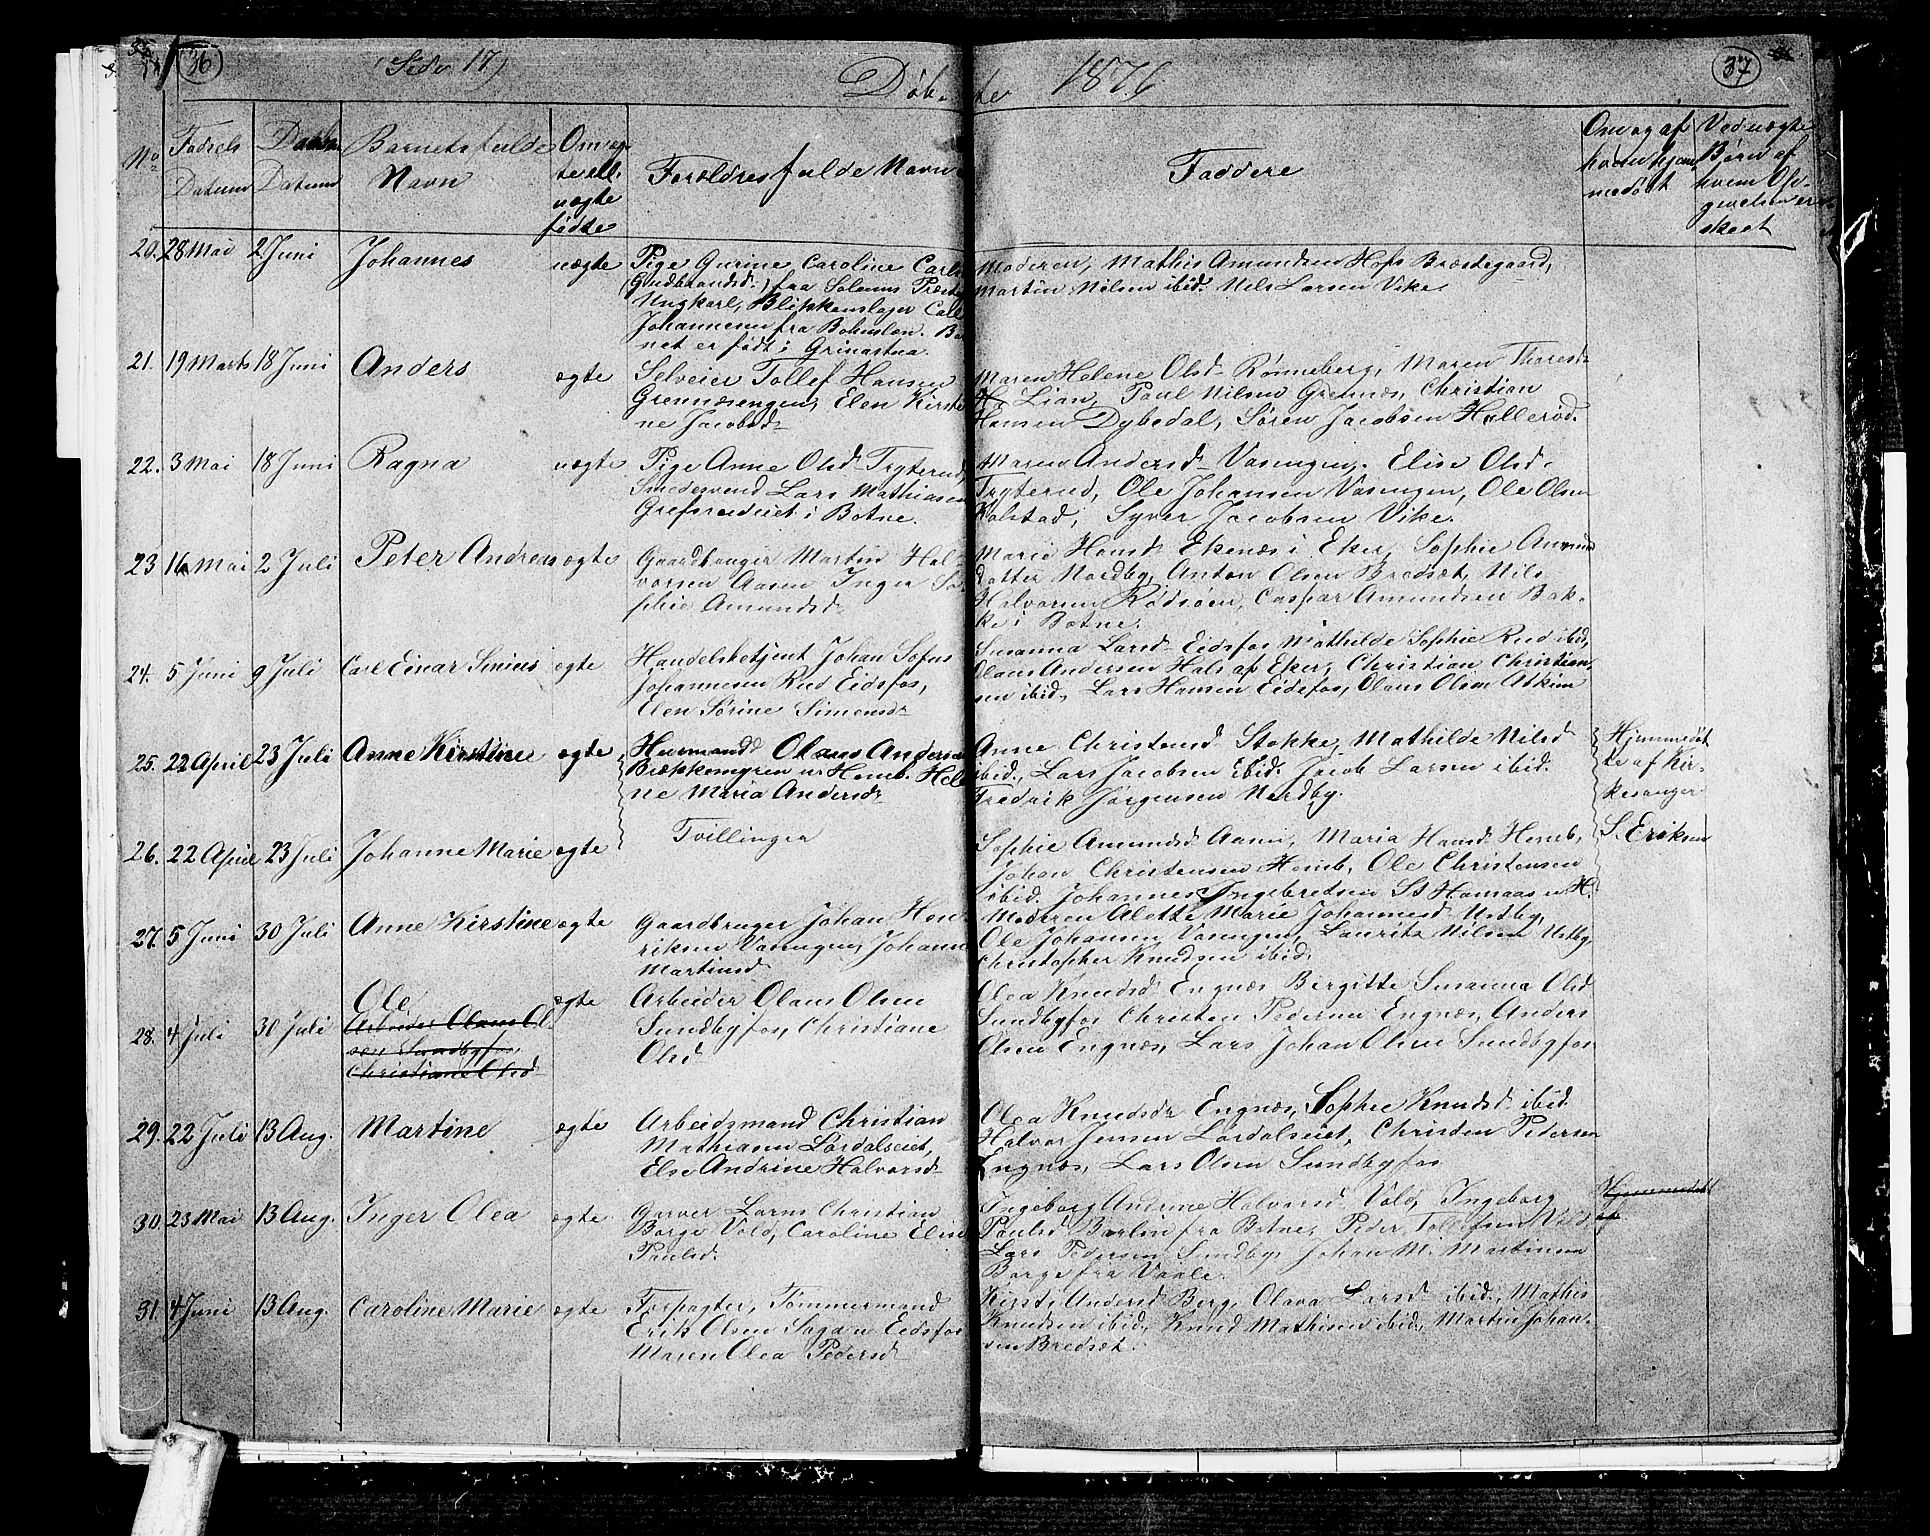 36 (Side 17) Døbte 1876 37
No Fødsels Datum Daabs Datum Barnets fulde Navn Om ægte ell. uægte fødte Forældres fulde Navn Faddere Om og af hvem hjemmedøbt Ved uægte Børn af hvem Opgivelsen er skeet
20. 28 Mai 2 Juni Johannes uægte
Pige Gurine Caroline Carls
(Gudbrandsd.) fra Solums Præste
Ungkarl, Blikkenslager Carl
Johannesen fra Bohuslen. Bar
net er født i
Moderen, Mathis Amundsen Hofs Præstegaard,
Martin Nilsen ibid. Nils Larsen Vike
21. 19 Marts 18 Juni Anders ægte
Selveier Tollef Hansen
Grennæsengen, Elen Kirsti
ne Jacobsdr
Maren Helene Olsd Rønneberg, Maren Tharesd
Lian, Paul Nilsen Grennæs, Christian
Hansen Dybedal, Søren Jacobsen Hillerød.
22. 3 Mai 18 Juni Ragna uægte
Pige Anne Olsd Tryterud,
Smedesvend Lars Mathiasen
Grefsrudeiet i Botne.
Maren Andersd Vasengen, Elise Olsd.
Tryterud, Ole Johansen Vasengen, Ole Olsen
Kolstad, Syver Jacobsen Vike.
23 16 Mai 2 Juli Peter Andreas ægte
Gaardbruger Martin Hal-
vorsen Aasen Inger So-
phie Amundsd
Marie Hansd Ekenæs i Eker, Sophie Amund
datter Nordby, Anton Olsen Bredsæt, Nils
Halvorsen Rødsøen, Caspar Amundsen Bak-
ke i Botne.
24. 5 Juni 9 Juli Carl Einar Sinius ægte
Handelsbetjent Johan Sofus
Johannesen Rud Eidsfos,
Elen Sørine Simensdr
Susanna Larsd Eidsfos Mathilde Sophie Rud ibid,
Olaus Andersen Hals af Eker, Christian Christian
sen ibid, Lars Hansen Eidsfos, Olaus Olsen Askim
25. 22 April 23 Juli Anne Kirstine ægte
Huusmand Olaus Andersen
Brækkemyren u. Hemb. Hele
ne Maria Andersdr
Anne Christensd Stokke, Mathilde Nilsd
ibid, Lars Jacobsen ibid. Jacob Larsen ibid.
Fredrik Jørgensen Nordby.
Hjemmedøb
te af Kir-
kesanger
S. Eriksen
Tvillinger
26. 22 April 23 Juli Johanne Marie ægte
Sophie Amundsd Aami, Maria Hansd Hemb,
Johan Christensen Hemb, Ole Christensen
ibid. Johannes Ingebredsen St Hamaas u H.
27. 5 Juni 30 Juli Anne Kirstine ægte
Gaardbruger Johan Hen-
riksen Vasengen, Johanne
Martinsd
Moderen Alette Marie Johannesd Ustby,
Ole Johansen Vasengen, Lauritz Nilsen Ustby
Christopher Knudsen ibid.
28. 4 Juli 30 Juli Ole ægte
Arbeider Olaus Ol
sen Sundbyfos,
Christiane Olsd
Arbeider Olaus Olsen
Sundbyfos, Christiane
Olsd
Olea Knudsd Engnæs Birgitte Susanna Olsd
Sundbyfos Christen Pedersen Engnæs, Anders
Olsen Engnæs, Lars Johan Olsen Sundbyfos
29. 22 Juli 13 Aug. Martine ægte
Arbeidsmand Christian
Mathiasen Lørdalseiet,
Else Andrine Halvorsdr
Olea Knudsdr Engnæs, Sophie Knudsd ibid
Halvor Jensen Lørdalseiet, Christen Pedersen
Engnæs, Lars Olsen Sundbyfos
30. 23 Mai 13 Aug. Inger Olea ægte
Garver Lorns Christian
Borge Vold, Caroline Elise
Paulsd.
Ingeborg Andrine Halvorsd Vold, Ingeborg
Paulsd Borlin fra Botne, Peder Tollefsen Vold,
Lars Pedersen Sundby, Johan M. Martinsen
Borge fra Vaale.
Hjemmedøbt
af
31. 4 Juni 13 Aug. Caroline Marie ægte
Forpagter, Tømmermand
Erik Olsen Saga u Eidsfos
Maren Olea Pedersdr
Kirsti Andersd Berg, Olava Larsd ibid, Mathis
Knudsen ibid, Knud Mathisen ibid, Martin Johan-
sen Bredsæt.